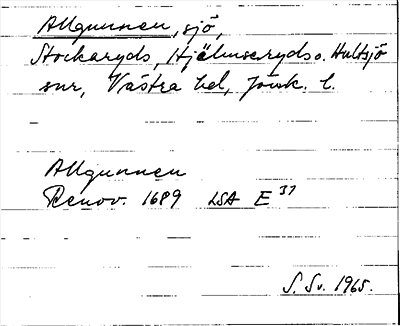 Allgunnen, sjö,
Stockaryds, Hjälmseryds o. Hultsjö
snr, Västra hd, Jönk. l.
Allgunnen
Renov. 1689 LSA E 37
S. Sv. 1965.